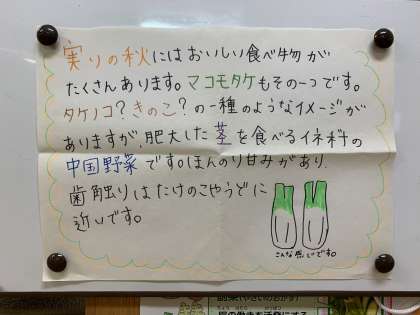 実りの秋にはおいしい食べ物が
たくさんあります。マコモタケもその一つです。
タケノコ?きのこ?の一種のようなイメージが
ありますが、肥大した茎を食べるイネ科の
中国野菜です。ほんのり甘みがあり、
歯触りはたけのこやうどに
近いです。
こんな感じです。